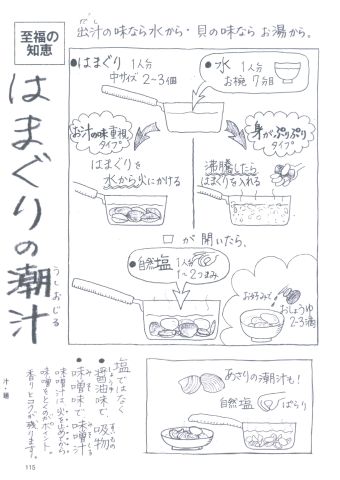 至福の
知恵
はまぐりの潮汁
うしおじる
だし
出汁の味なら水から・貝の味なら お湯から。
●はまぐり 1人分
中サイズ 2~3個
●水 1人分
お椀 7分目
お汁の味重視
タイプ
身がぷりぷり
タイプ
はまぐりを
水から火にかける
沸騰したら
はまぐりを入れる
口が開いたら、
●自然塩 1人分
1~2つまみ
お好みで
おしょうゆ
2~3滴
塩ではなく
●醤油味で、吸物
すいもの
●味噌味で味噌汁
みそ みそしる
味噌汁は火を止めてから
味噌をとくのがポイント。
香りとコクが残ります。
あさりの潮汁も!
自然塩 ぱらり
汁・麺
115